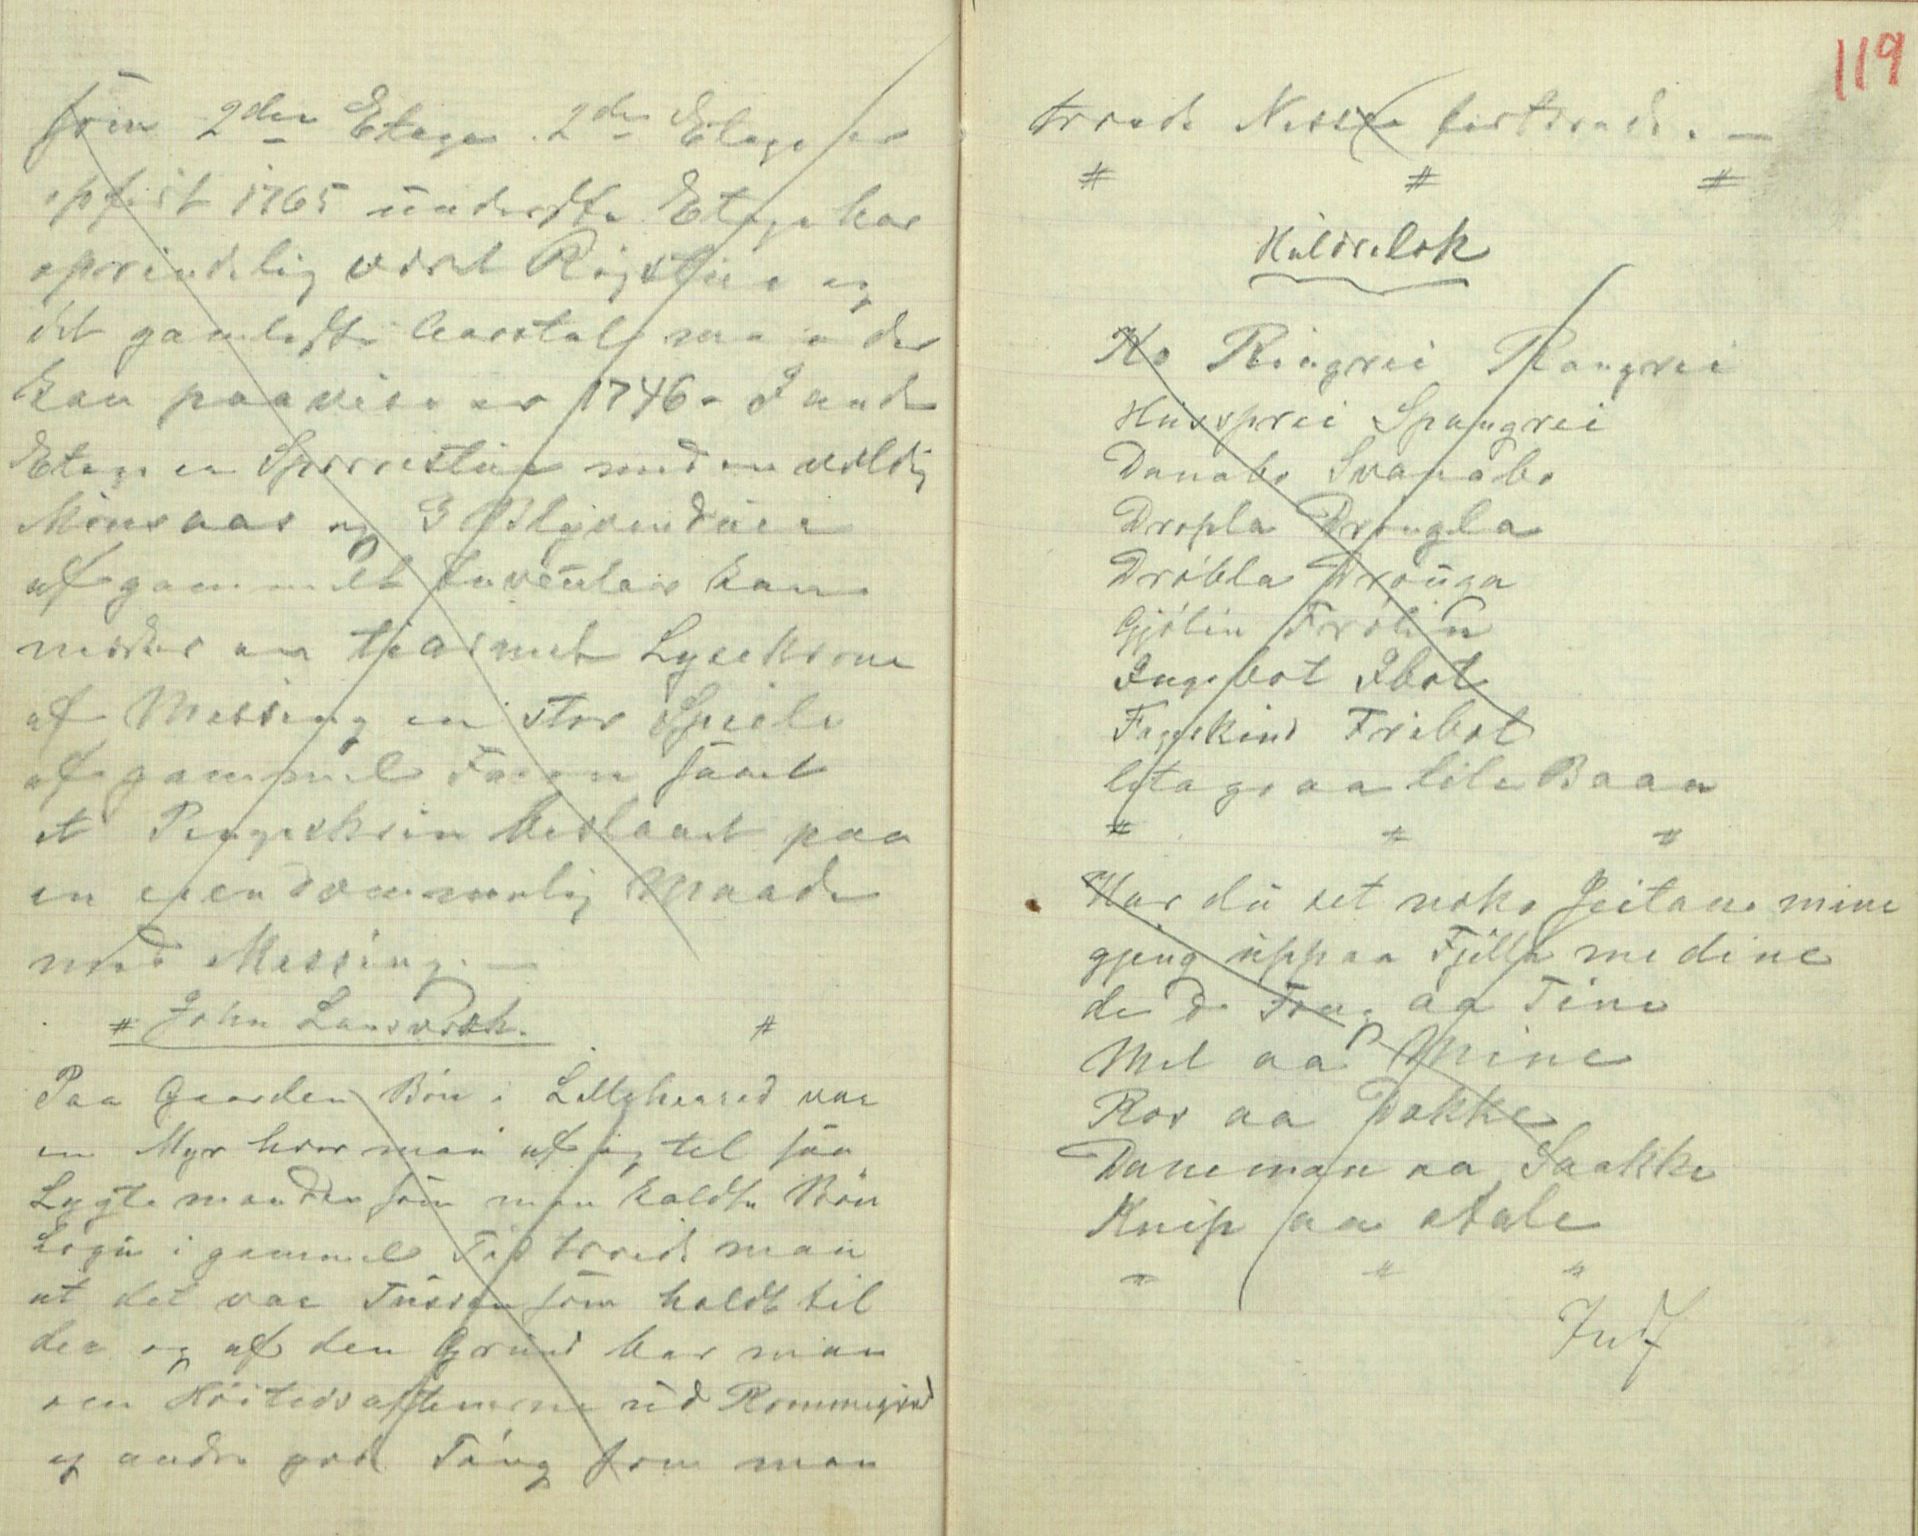 som 2den Etage. 2den Etage er
opført 1765 underste Etage har
oprindelig været Røgstue og
det gamleste Aarstal man der
kan paavise er 1746. I anden
Etage er Sperrestue med en veldig
Mønsaas og 3 Blyvinduer
af gammelt Inventar kan
merkes en tiarmet Lysekrone
af Messing en stor Speile
af gammel Facon samt
et Pengeskrin beslaaet paa
en eiendommelig Maade
med Messing. —
# John Lansverk. #
Paa Gaarden Bøn i Lilleherred var
en Myr hvor man af og til saa
Lygtemanden som man kaldte Bøn
Logji i gammel Tid troede man
at det var Tussen som holdt til
der og af den Grund bar man
om Høitidsaftenerne ud Rommegrød
og andre god Ting som man
119
troede Nissen fortærede. —
# # #
Huldrelok
Ko Ringrei Rangrei
Hussprei Spangrei
Danabo Svanabo
Dropla Drougla
Drøbla Drouga
Gjølin Frølin
Ingebot Ibot
Fagekind Fribot
litago aa lile Baan
# # #
Har du set noko Jeitane mine
gjeng uppaa Fjille me dine
de D Traug aa Tine
Mel aa Mine
Ror aa Dakke
Daneman aa Saakke
Knip aa stale
" " "
Indf